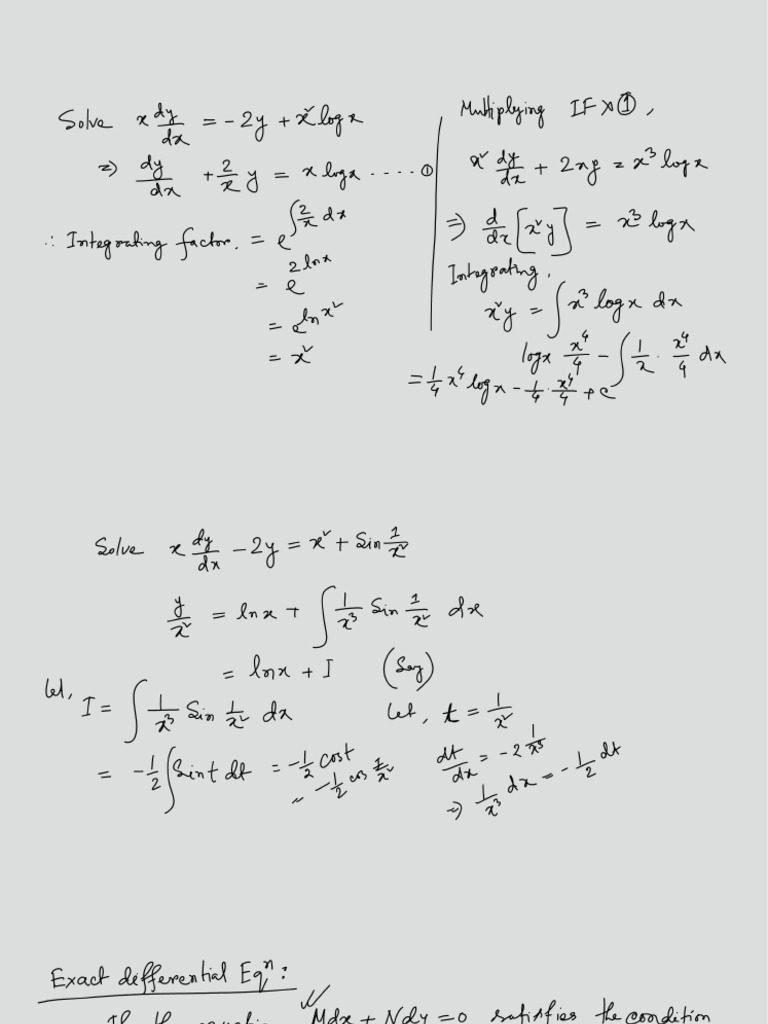 Solve x dy/dx = -2y + x² log x
=> dy/dx + 2/x y = x log x .... ①
∴ Integrating factor. = e^{∫ 2/x dx}
= e^{2 ln x}
= e^{ln x²}
= x²
Multiplying IF × ①,
x² dy/dx + 2xy = x³ log x
=> d/dx [x² y] = x³ log x
Integrating,
x² y = ∫ x³ log x dx
log x x⁴/4 - ∫ 1/x · x⁴/4 dx
= 1/4 x⁴ log x - 1/4 · x⁴/4 + c
Solve x dy/dx - 2y = x² + Sin 1/x²
y/x² = ln x + ∫ 1/x³ Sin 1/x² dx
= ln x + I (Say)
Let, I = ∫ 1/x³ Sin 1/x² dx
Let, t = 1/x²
= -1/2 ∫ Sin t dt = -1/2 cos t
= -1/2 cos 1/x²
dt/dx = -2 1/x³
=> 1/x³ dx = -1/2 dt
Exact differential Eqⁿ:
If the equation Mdx + Ndy = 0 satisfies the condition